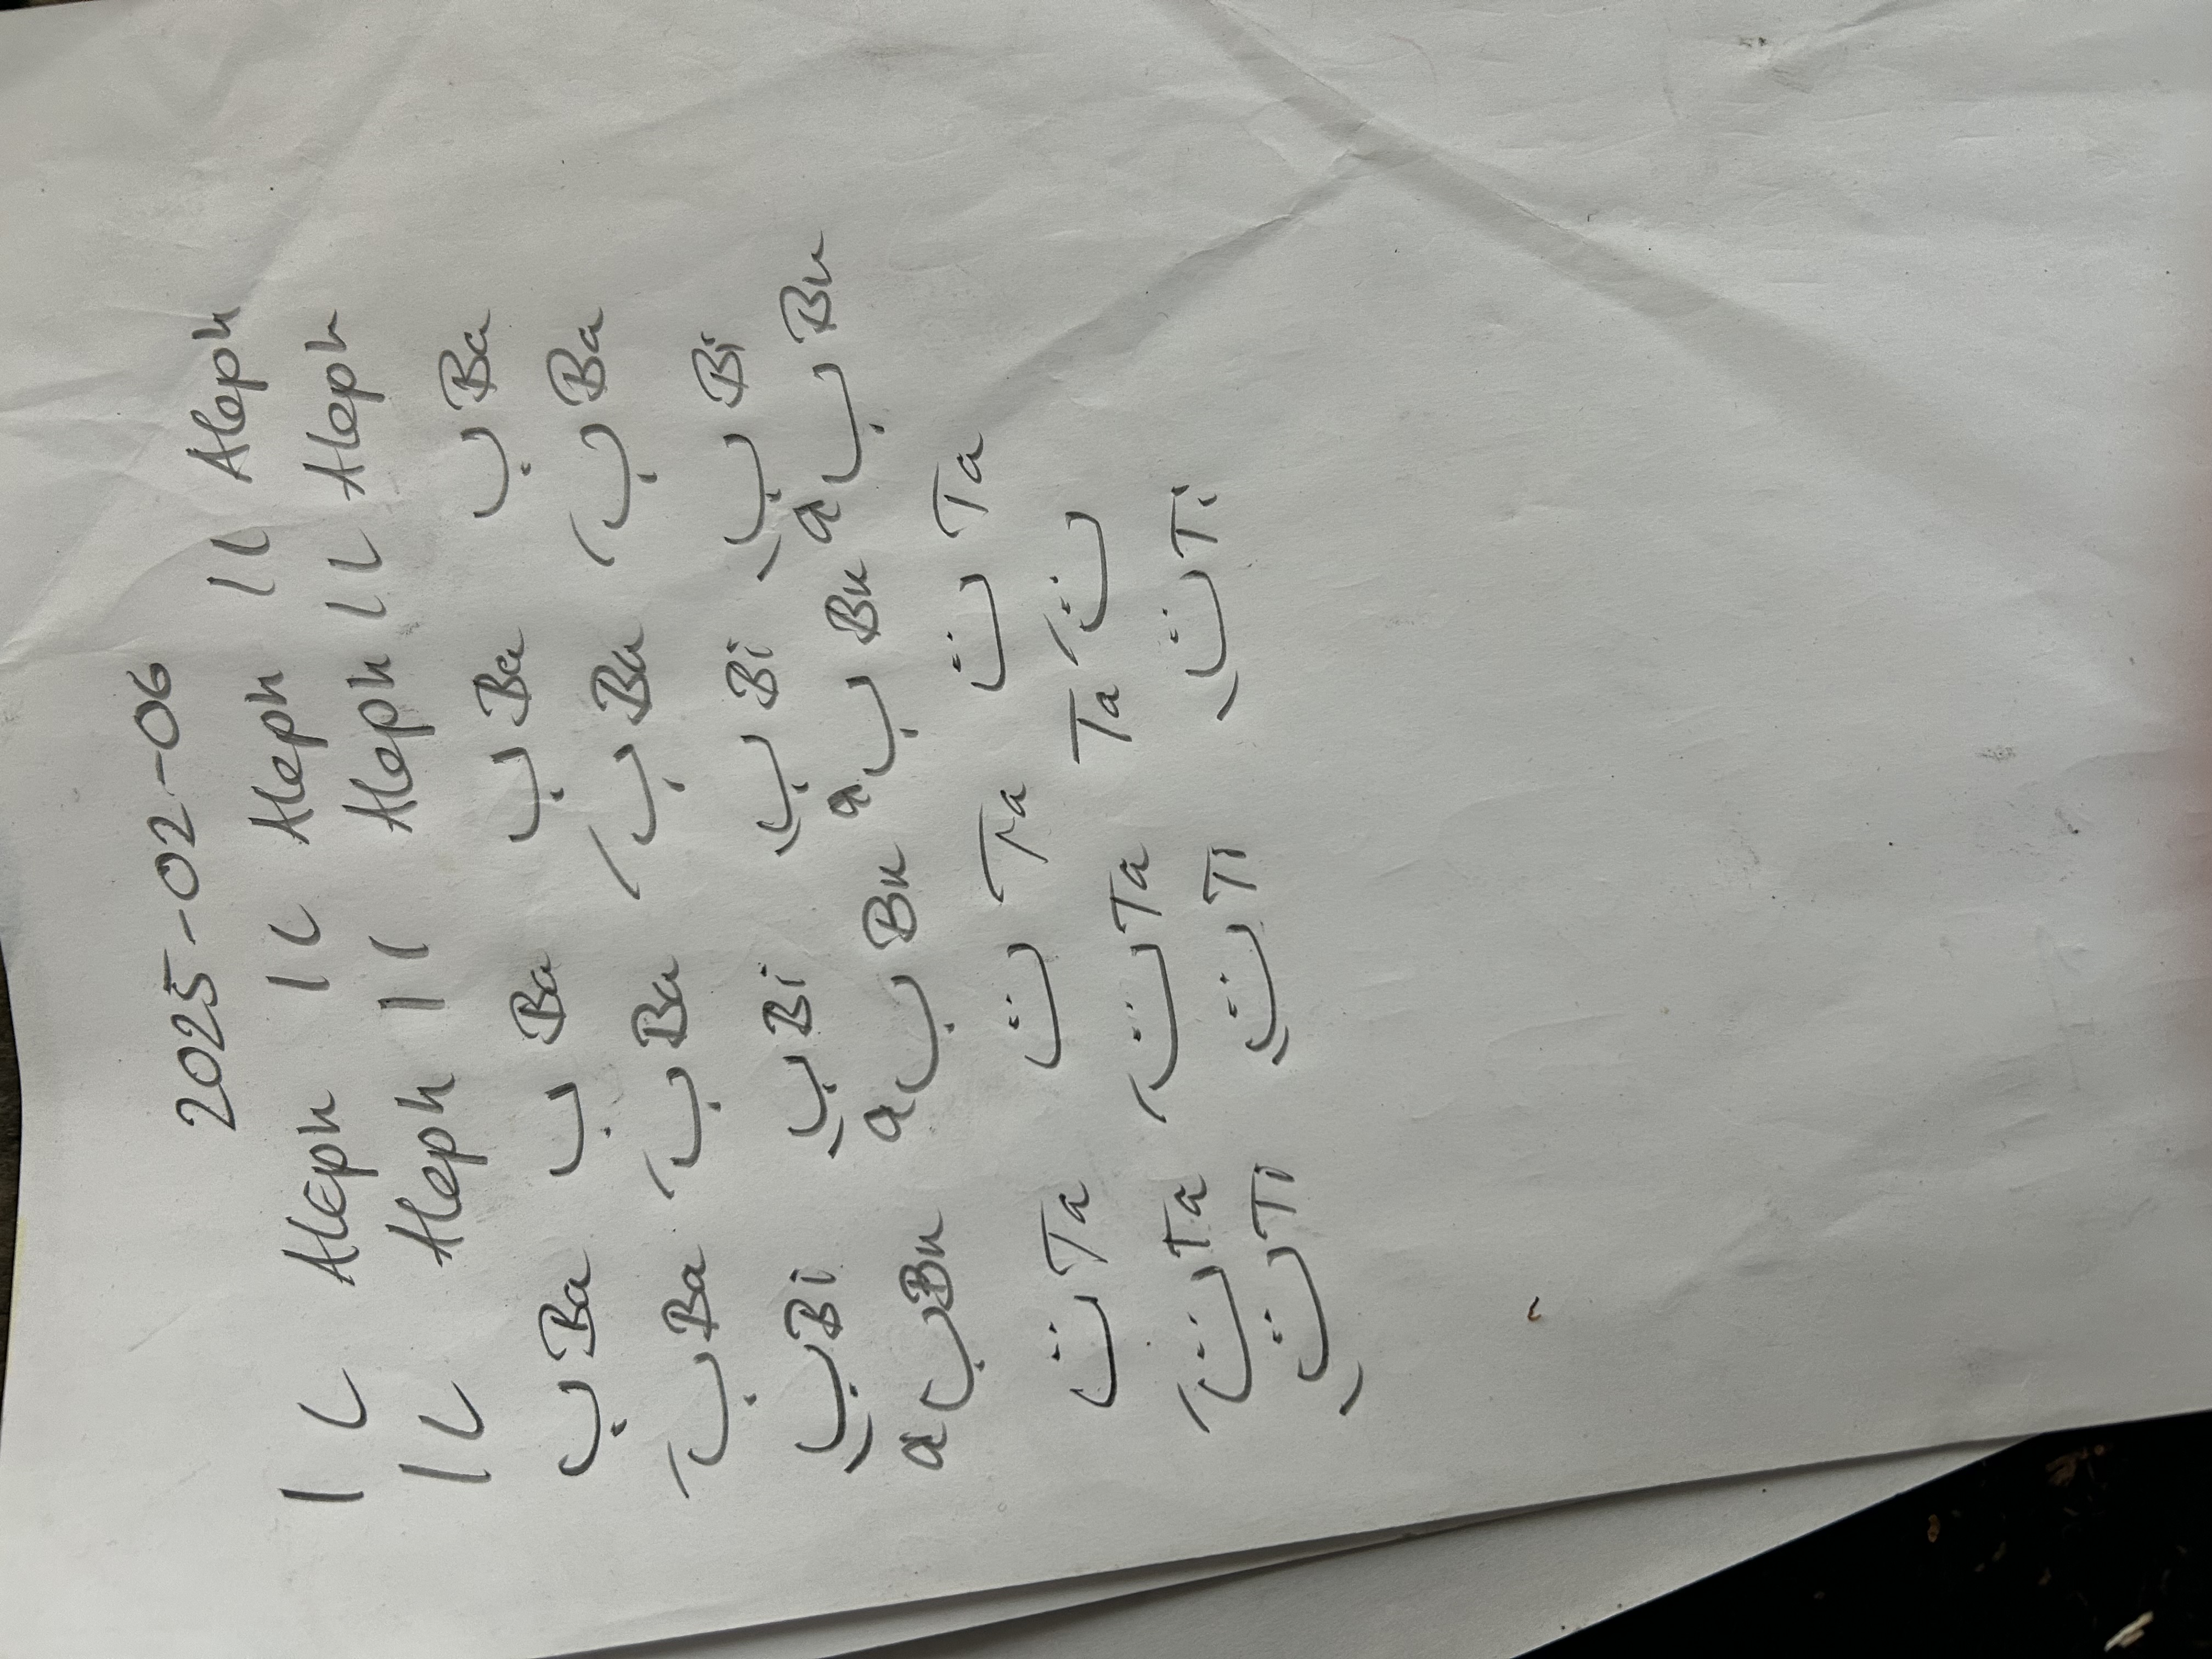 2025-02-06
ا ا Aleph ا ا Aleph ا ا Aleph
ا ا Aleph ا ا Aleph ا ا Aleph
ب Ba ب Ba ب Ba ب Ba
بَ Ba بَ Ba بَ Ba بَ Ba
بِ Bi بِ Bi بِ Bi بِ Bi
بُ Bu بُ Bu بُ Bu بُ Bu
ت Ta ت Ta ت Ta
تَ Ta تَ Ta Ta تَ
تِ Ti تِ Ti تِ Ti